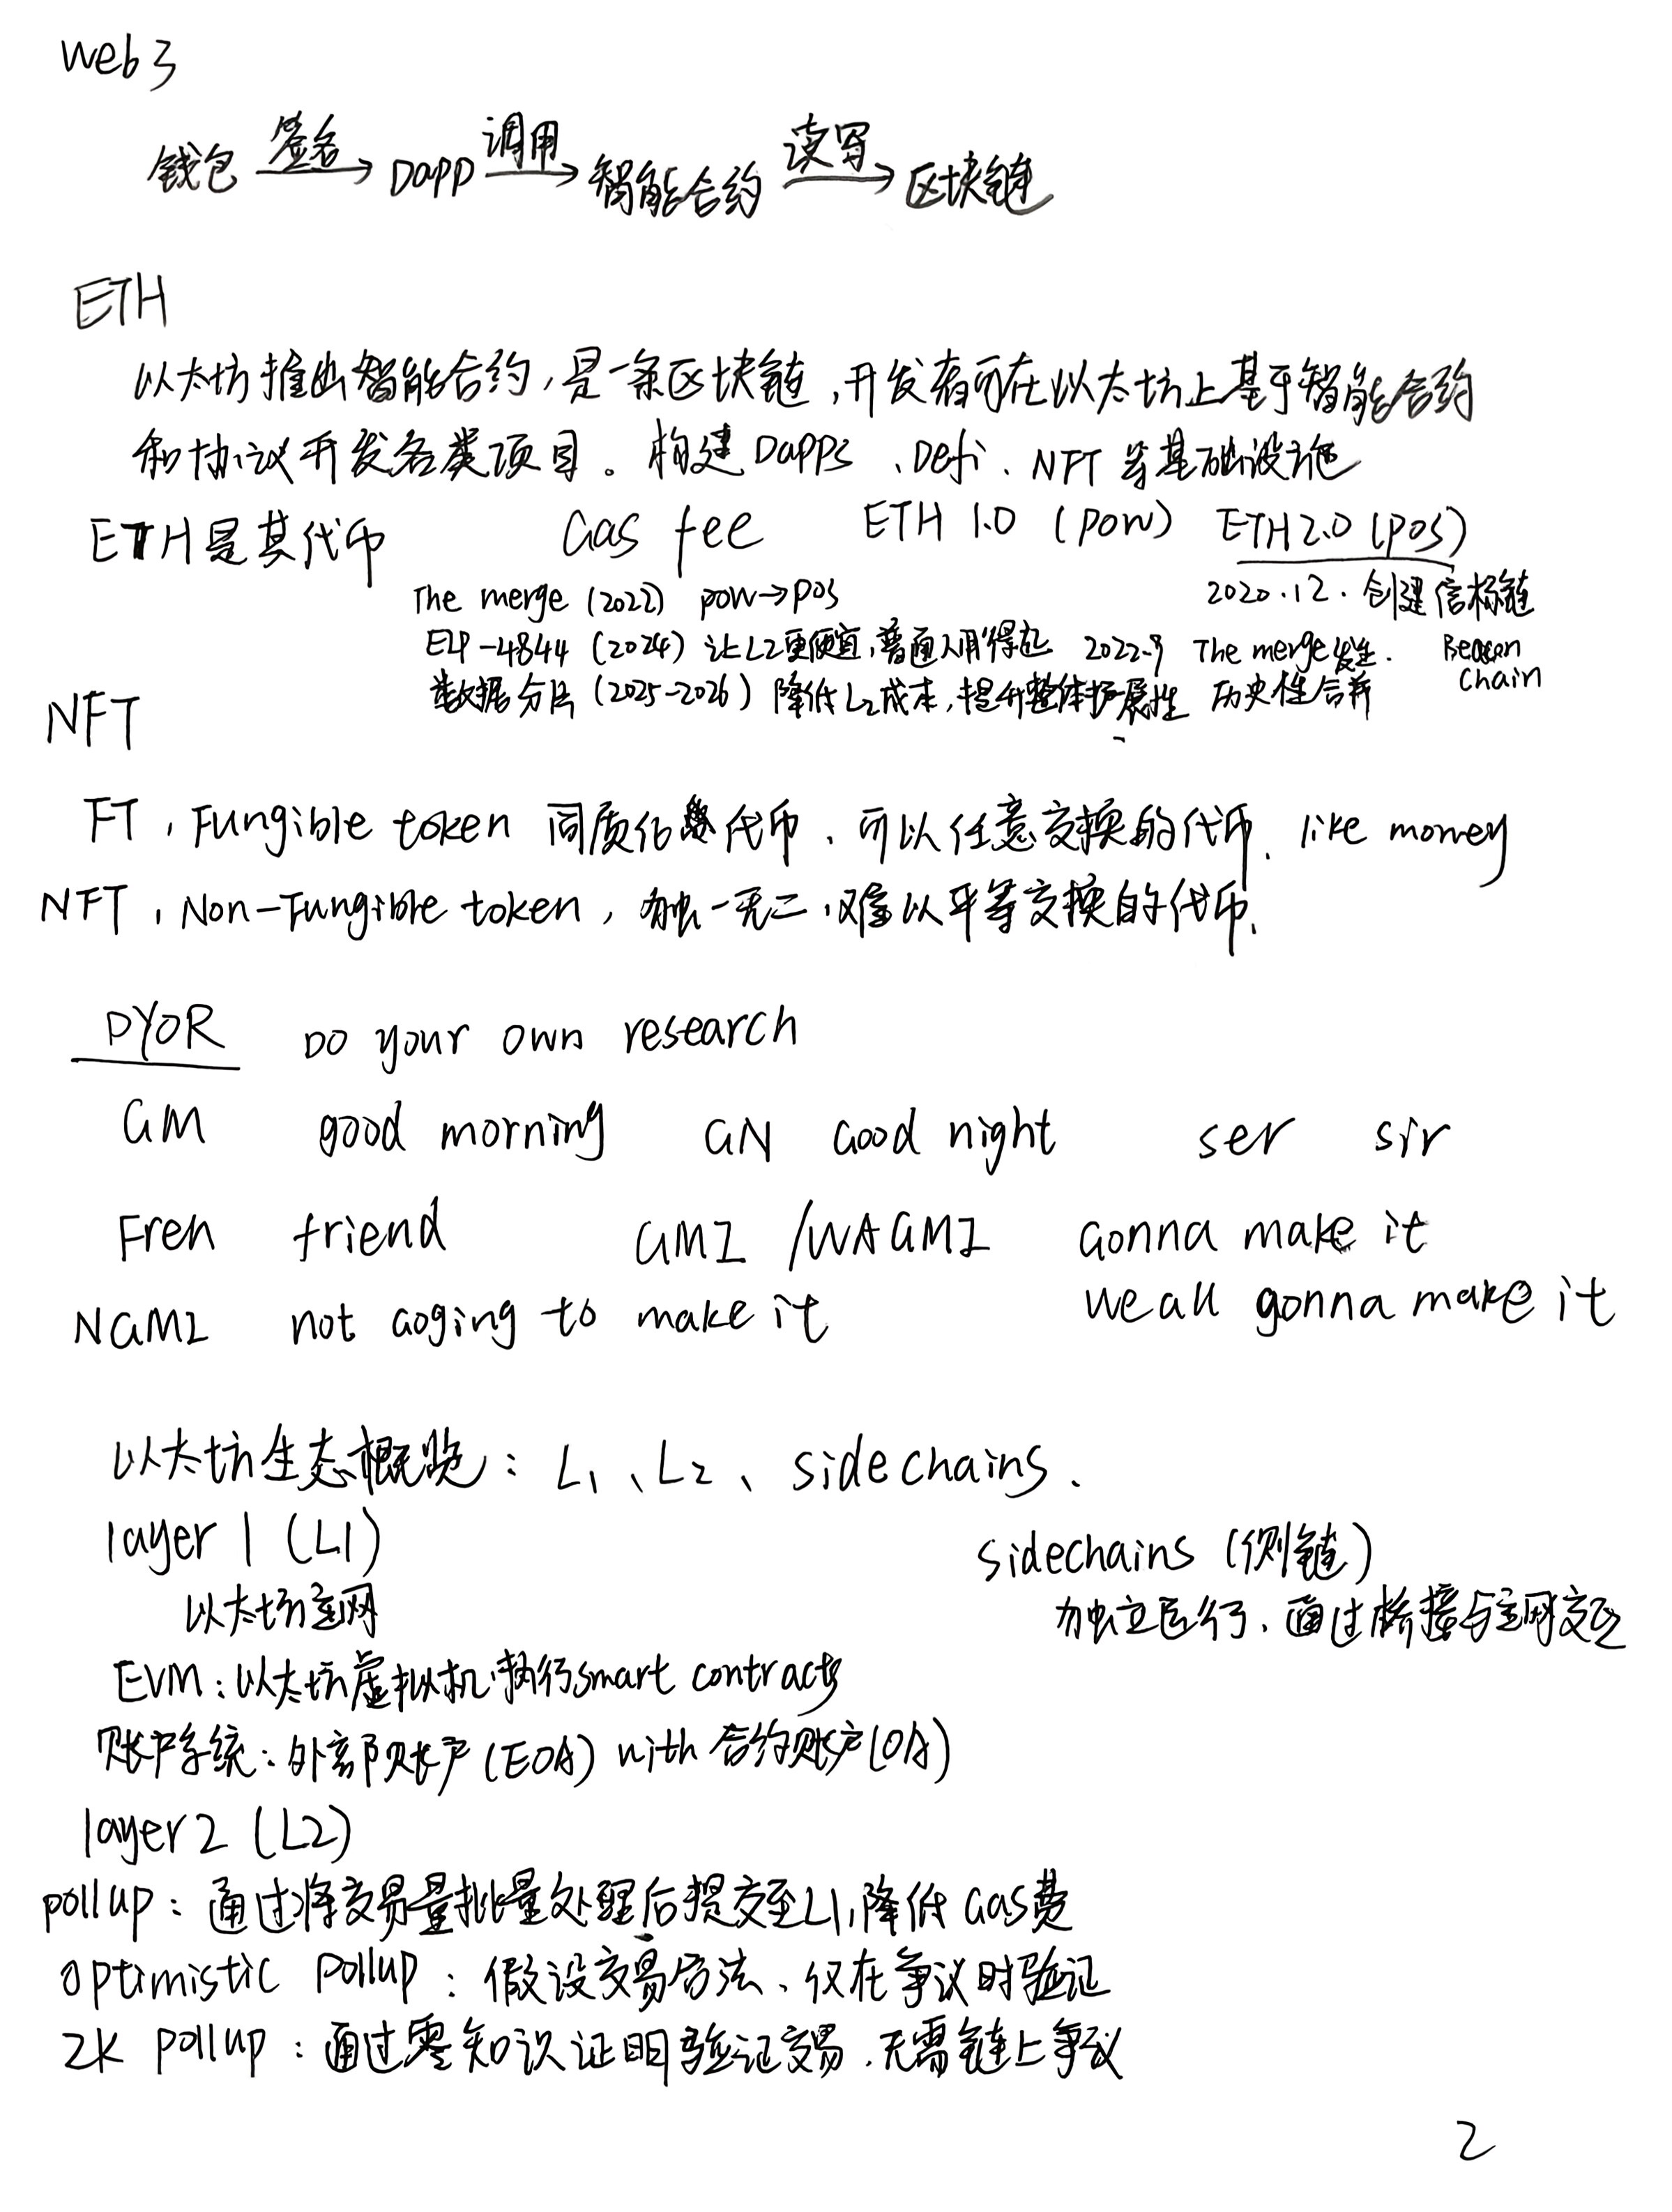 web3
钱包 签名→ Dapp 调用→ 智能合约 读写→ 区块链
ETH
以太坊推出智能合约,是一条区块链,开发者可在以太坊上基于智能合约
和协议开发各类项目。构建Dapps、Defi、NFT等基础设施
ETH是其代币 Gas fee ETH 1.0 (pow) ETH2.0 (pos)
The merge (2022) pow→pos 2020.12. 创建信标链
EIP-4844 (2024) 让L2更便宜,普通人用得起 2022.9 The merge发生. Beacon
数据分片 (2025-2026) 降低L2成本,提升整体扩展性 历史性合并 chain
NFT
FT, Fungible token 同质化代币、可以任意交换的代币、like money
NFT, Non-Fungible token, 独一无二,难以平等交换的代币、
DYOR Do your own research
GM good morning GN Good night ser sir
Fren friend GMI /WAGMI Gonna make it
NGMI not goging to make it we all gonna make it
以太坊生态概览: L1、L2、sidechains.
layer 1 (L1)
sidechains (侧链)
以太坊主网
独立运行、通过桥接与主网交互
EVM:以太坊虚拟机,执行smart contracts
账户系统:外部账户(EOA) with 合约账户(OA)
layer2 (L2)
pollup: 通过将交易量批量处理后提交至L1,降低Gas费
Optimistic pollup: 假设交易合法、仅在争议时验证
ZK pollup: 通过零知识证明验证交易、无需链上争议
2